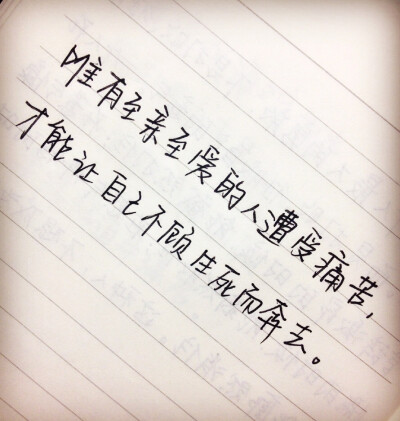 唯有至亲至爱的人遭受痛苦，
才能让自己不顾生死而奔去。